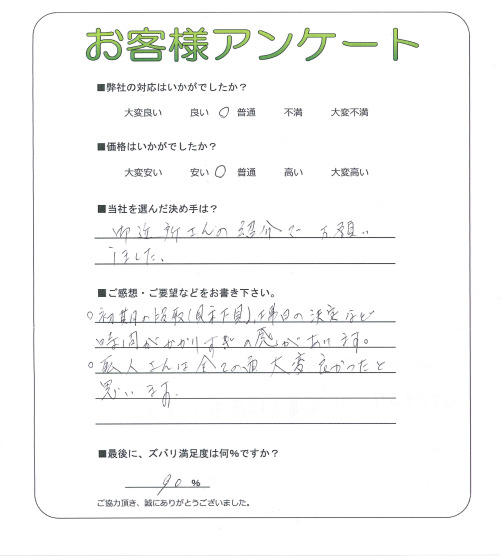 お客様アンケート
■弊社の対応はいかがでしたか？
大変良い 良い 普通 不満 大変不満
■価格はいかがでしたか？
大変安い 安い 普通 高い 大変高い
■当社を選んだ決め手は？
御近所さんの紹介でお願い
しました。
■ご感想・ご要望などをお書き下さい。
○初期の段取(見末下見)、工事日の決定など
時間がかかりすぎの感があります。
○職人さんは全ての面大変良かったと
思います。
■最後に、ズバリ満足度は何%ですか？
90 %
ご協力頂き、誠にありがとうございました。